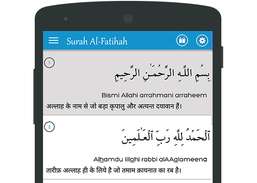 Surah Al-Fatihah
1
بِسْمِ اللَّهِ الرَّحْمَٰنِ الرَّحِيمِ
Bismi Allahi arrahmani arraheem
अल्लाह के नाम से जो बड़ा कृपालु और अत्यन्त दयावान हैं।
2
الْحَمْدُ لِلَّهِ رَبِّ الْعَالَمِينَ
Alhamdu lillahi rabbi alAAalameena
तारीफ़ अल्लाह ही के लिये है जो तमाम क़ायनात का रब है।